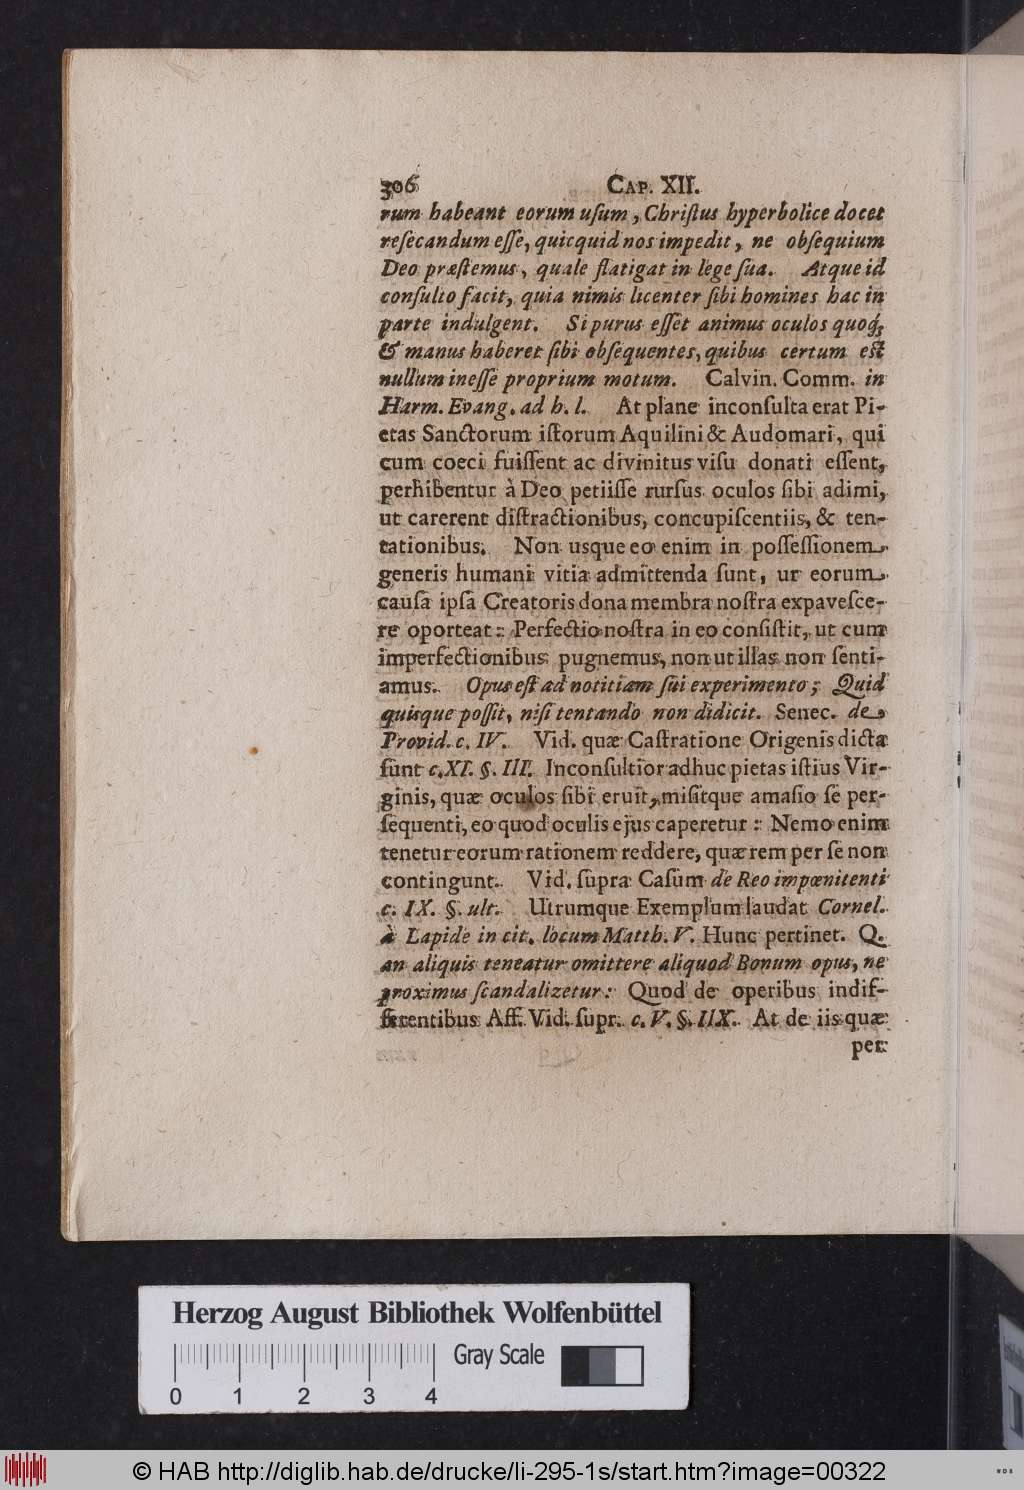 306 CAP. XII.
rum habeant eorum uſum, Chriſtus hyperbolice docet
reſecandum eſſe, quicquid nos impedit, ne obſequium
Deo præſtemus, quale flatigat in lege ſua. Atque id
conſulto facit, quia nimis licenter ſibi homines hac in
parte indulgent. Si purus eſſet animus oculos quoq;
& manus haberet ſibi obſequentes, quibus certum eſt
nullum ineſſe proprium motum. Calvin. Comm. in
Harm. Evang. ad h. l. At plane inconſulta erat Pi-
etas Sanctorum iſtorum Aquilini & Audomari, qui
cum coeci fuiſſent ac divinitus viſu donati eſſent,
perhibentur à Deo petiiſſe rurſus oculos ſibi adimi,
ut carerent diſtractionibus, concupiſcentiis, & ten-
tationibus. Non usque eo enim in poſſeſſionem
generis humani vitia admittenda ſunt, ut eorum
cauſa ipſa Creatoris dona membra noſtra expaveſce-
re oporteat: Perfectio noſtra in eo conſiſtit, ut cum
imperfectionibus pugnemus, non ut illas non ſenti-
amus. Opus eſt ad notitiam ſui experimento; Quid
quisque poſſit, niſi tentando non didicit. Senec. de
Provid. c. IV. Vid. quæ Caſtratione Origenis dicta
ſunt c. XI. §. III. Inconſultior adhuc pietas iſtius Vir-
ginis, quæ oculos ſibi eruit, miſitque amaſio ſe per-
ſequenti, eo quod oculis ejus caperetur: Nemo enim
tenetur eorum rationem reddere, quæ rem per ſe non
contingunt. Vid. ſupra Caſum de Reo impœnitenti
c. IX. §. ult. Utrumque Exemplum laudat Cornel.
à Lapide in cit. locum Matth. V. Hunc pertinet. Q.
an aliquis teneatur omittere aliquod Bonum opus, ne
proximus ſcandalizetur: Quod de operibus indif-
ferentibus Aff. Vid. ſupr. c. V. §. IIX. At de iis quæ
per
Herzog August Bibliothek Wolfenbüttel
Gray Scale
0 1 2 3 4
© HAB http://diglib.hab.de/drucke/li-295-1s/start.htm?image=00322